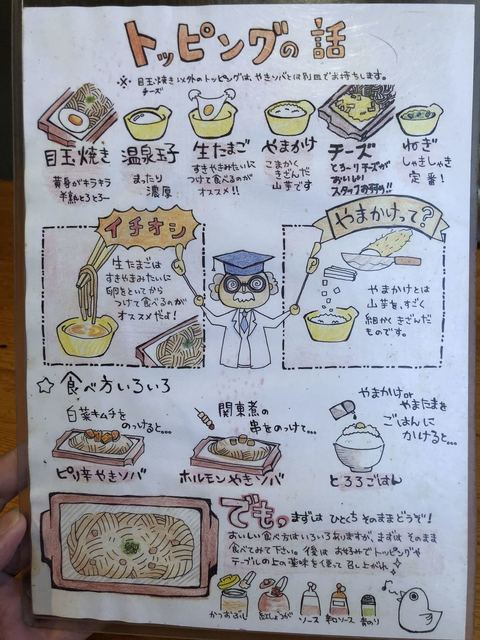 トッピングの話
※目玉焼き以外のトッピングは、やきソバとは別皿でお持ちします。
チーズ
目玉焼き
黄身がキラキラ
半熟とろとろ~
温泉玉子
まったり
濃厚
生たまご
すきやきみたいに
つけて食べるのが
オススメ!!
やまかけ
こまかく
きざんだ
山芋です
チーズ
とろ~りチーズが
おいしい
スタッフおすすめ!!
ねぎ
しゃきしゃき
定番!
イチオシ
生たまごは
すきやきみたいに
卵をといてから
つけて食べるのが
オススメだよ!
やまかけって?
やまかけとは
山芋を、すごく
細かくきざんだ
ものです。
☆食べ方いろいろ
白菜キムチを
のっけると…
ピリ辛やきソバ
関東煮の
串をのっけて…
ホルモンやきソバ
やまかけor
やまたまを
ごはんに
かけると…
とろろごはん
でも。まずはひとくちそのままどうぞ!
おいしい食べ方はいろいろありますが、まずはそのまま
食べてみて下さい。後はお好みでトッピングや
テーブルの上の薬味を使って召し上がれ
かつおぶし
紅しょうが
ソース
辛口ソース
青のり